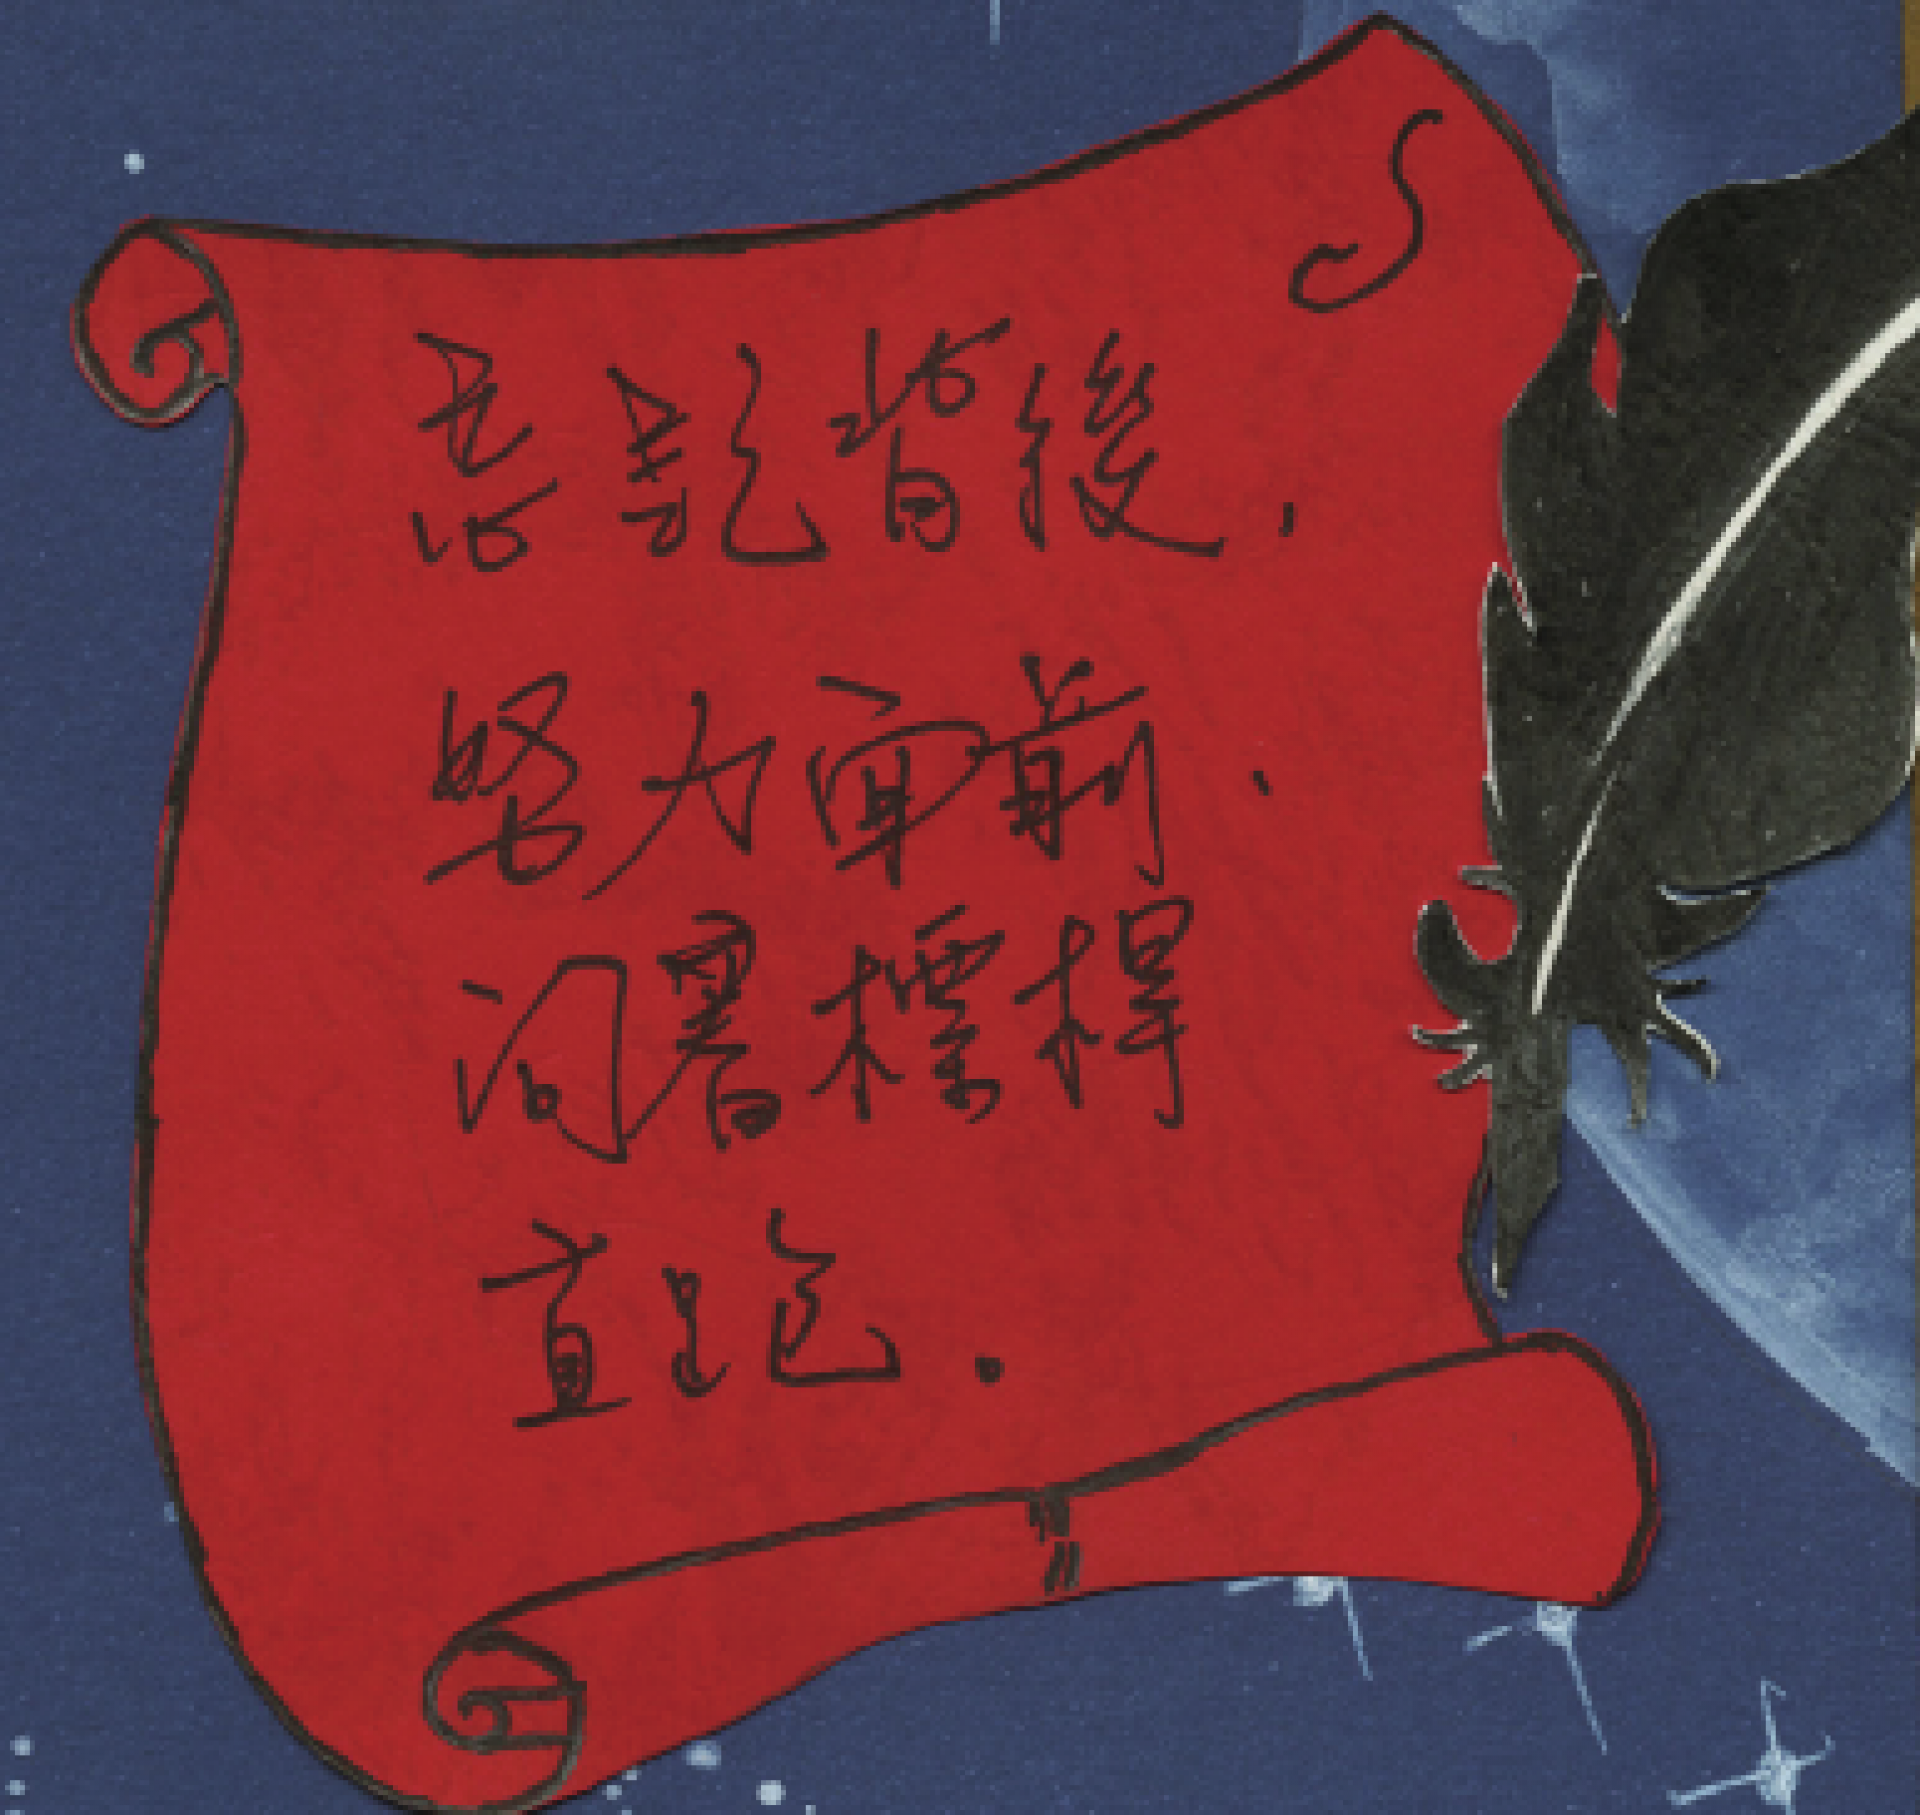 忘記背後,
努力面前,
向著標桿
直跑.